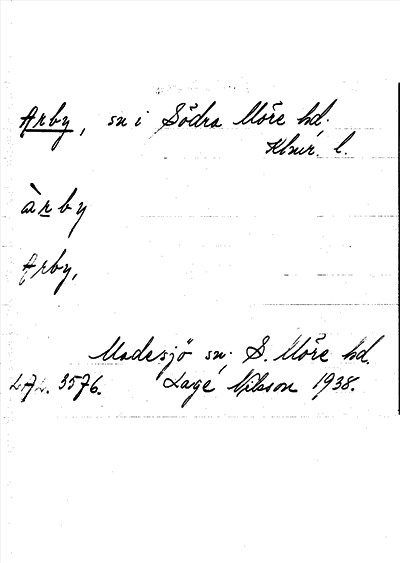 Arby, sn i Södra Möre hd.
Klmr. l.
àrby
Arby,
Madesjö sn; S. Möre hd.
L.A.L. 3576. Lage Nilsson 1938.